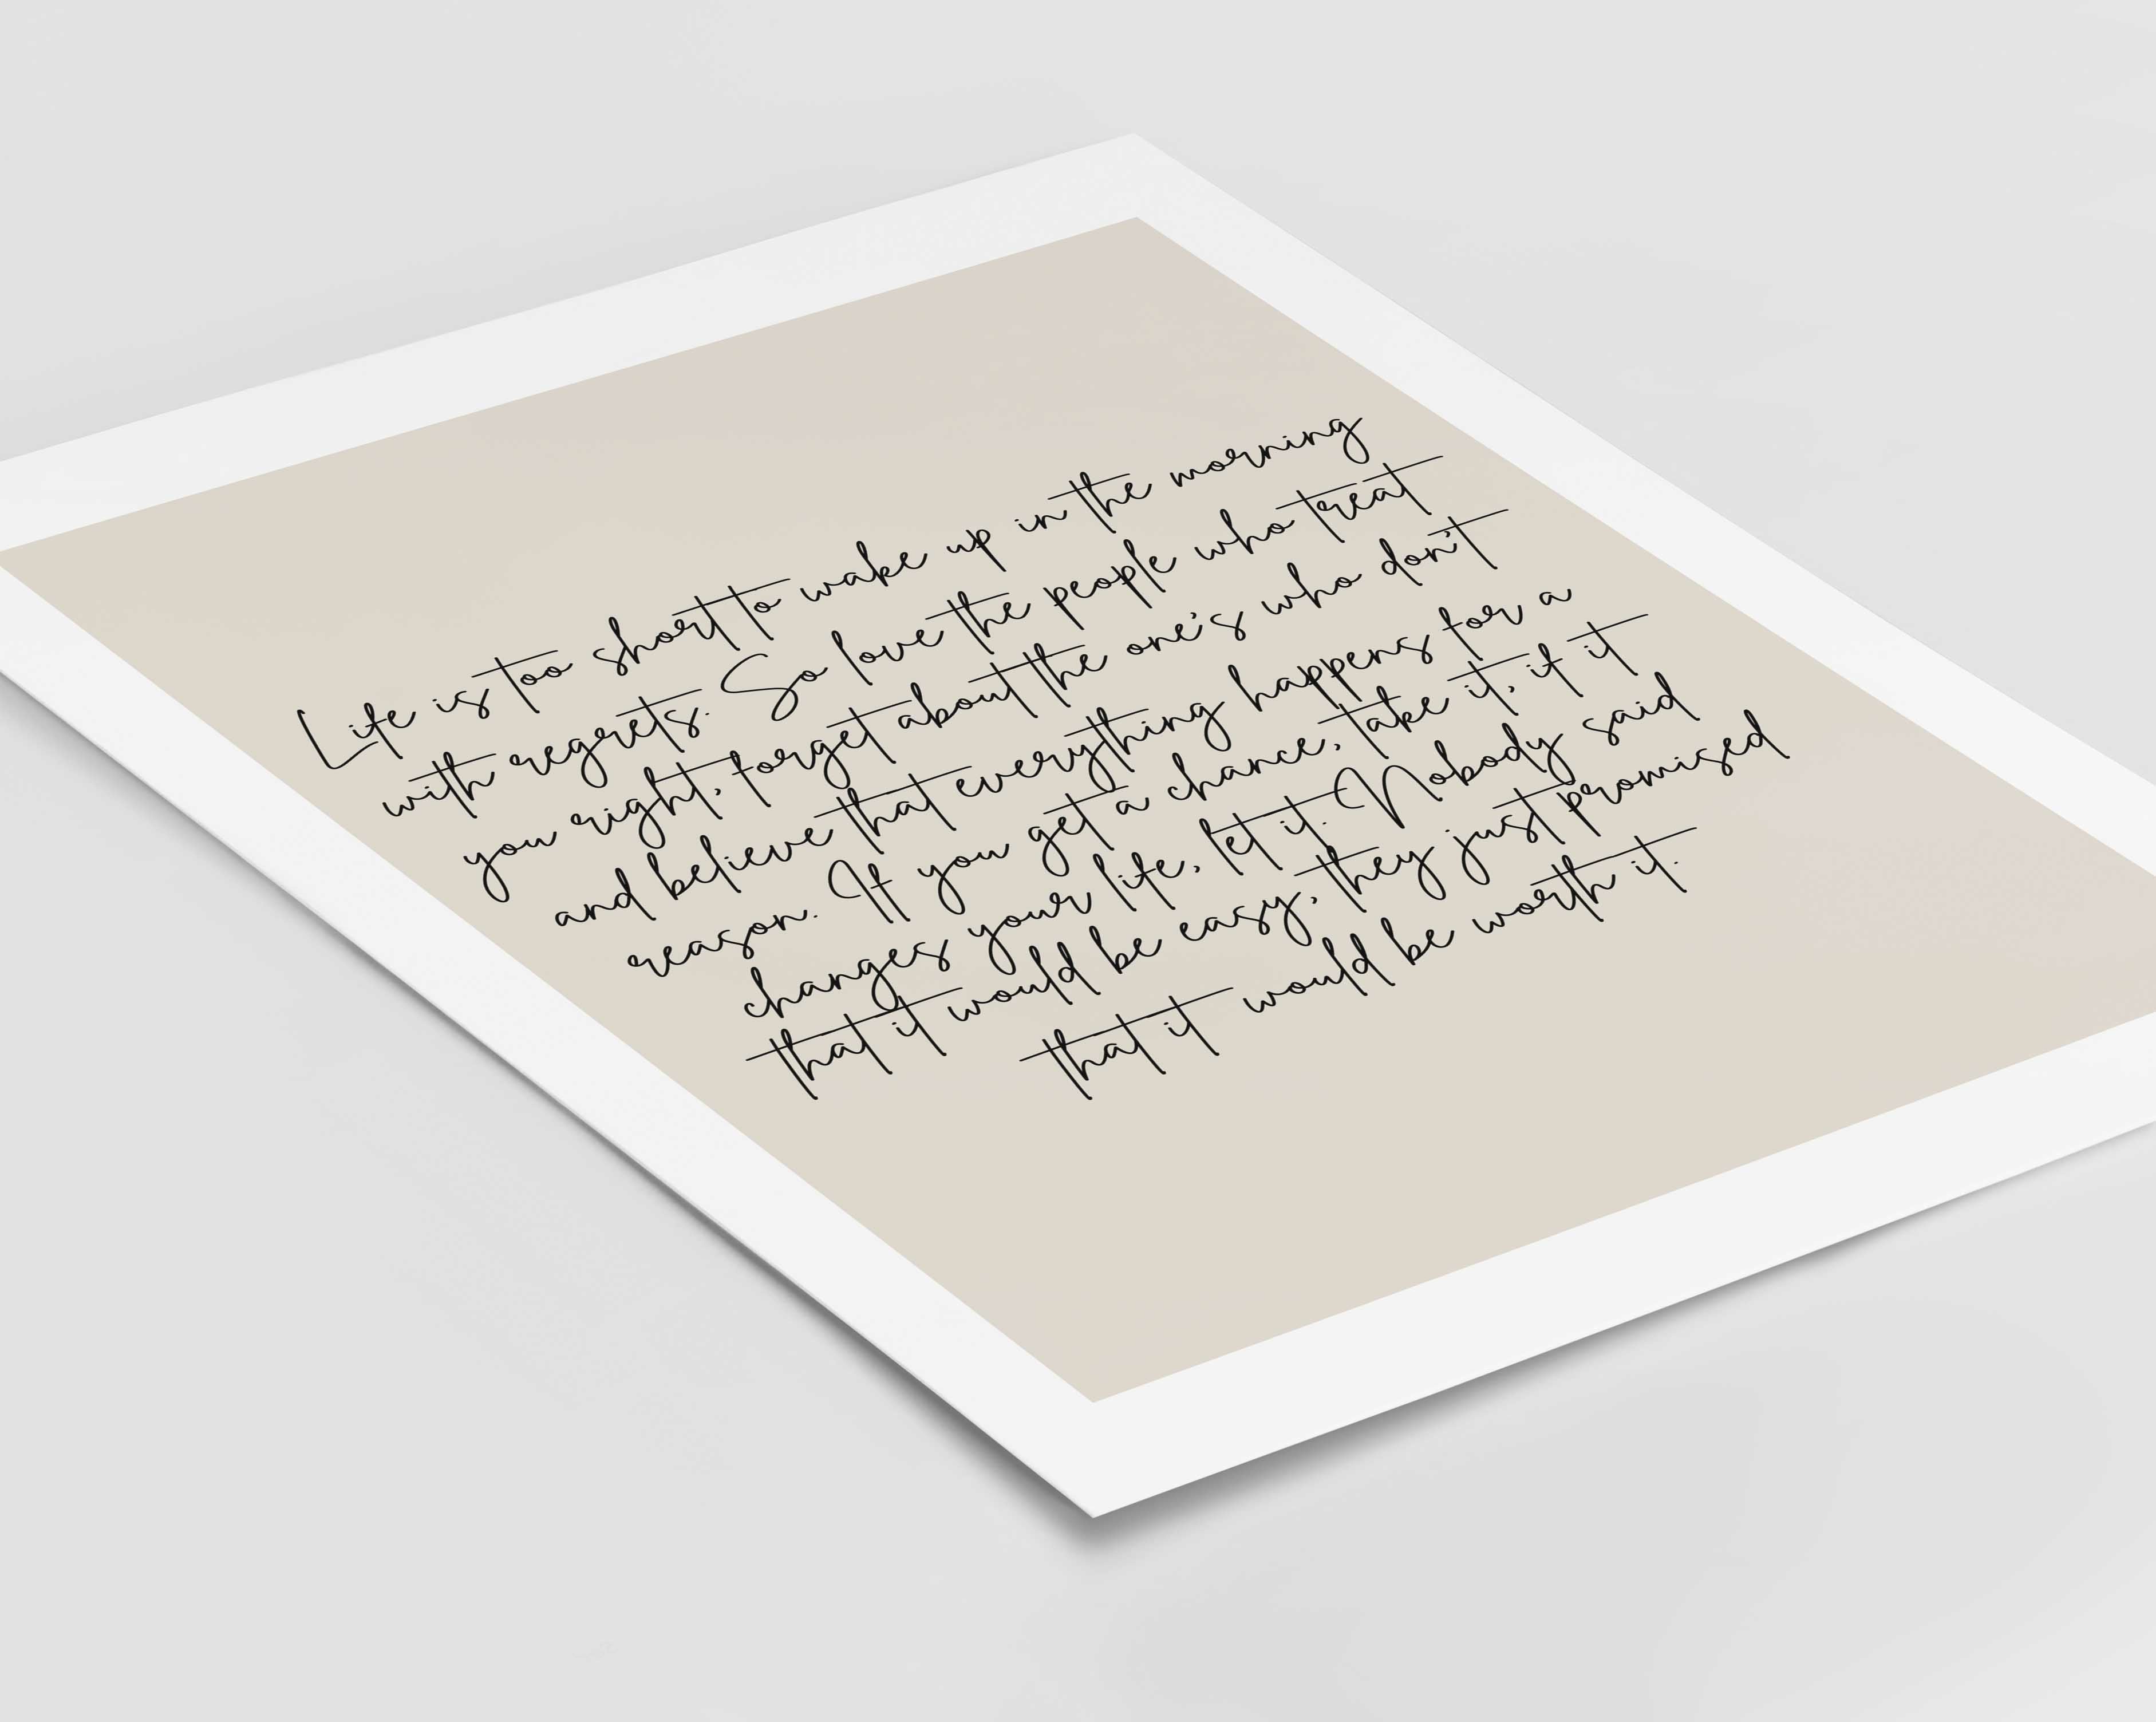 Life is too short to wake up in the morning
with regrets. So love the people who treat
you right, forget about the one's who don't
and believe that everything happens for a
reason. If you get a chance, take it, if it
changes your life, let it. Nobody said
that it would be easy, they just promised
that it would be worth it.